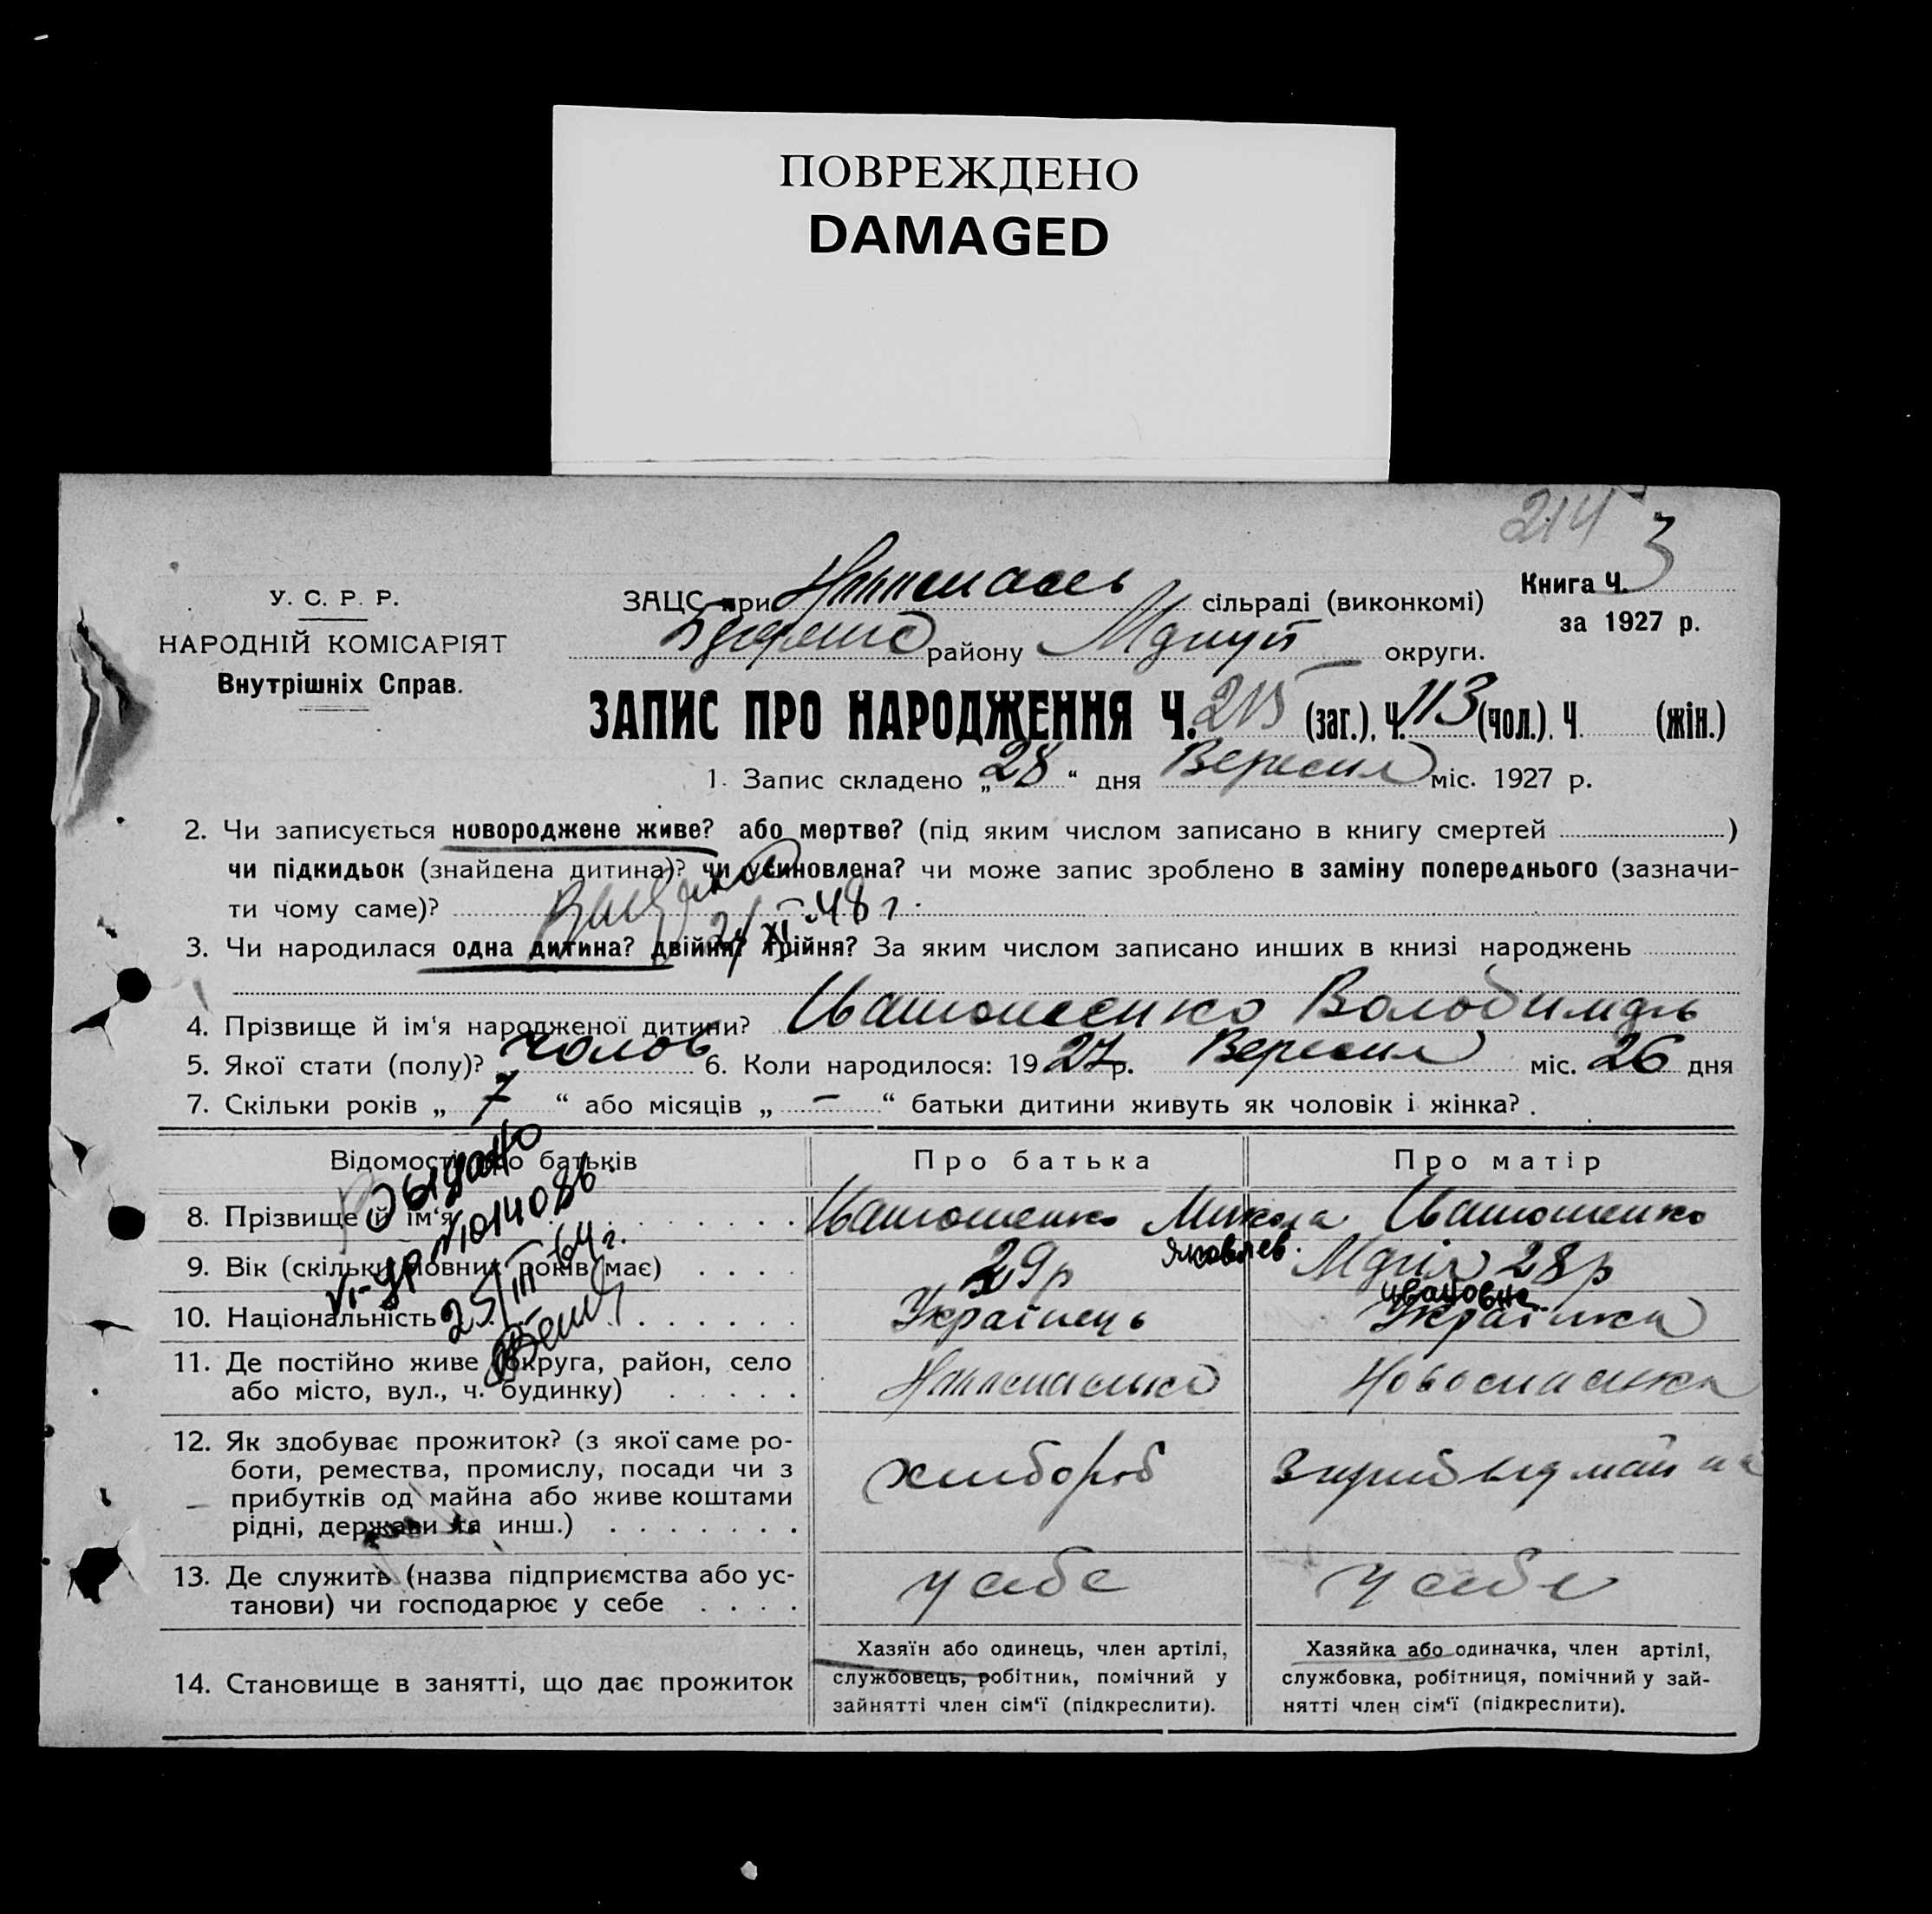 ПОВРЕЖДЕНО
DAMAGED
214
У. С. Р. Р.
НАРОДНІЙ КОМІСАРІЯТ
Внутрішніх Справ.
ЗАЦС при сільраді (виконкомі)
району округи.
Книга Ч. 3
за 1927 р.
ЗАПИС ПРО НАРОДЖЕННЯ Ч. 215 (заг.). Ч. 113 (чол.). Ч. (жін.)
1. Запис складено „28“ дня Вересня міс. 1927 р.
2. Чи записується новороджене живе? або мертве? (під яким числом записано в книгу смертей )
чи підкидьок (знайдена дитина)? чи усиновлена? чи може запис зроблено в заміну попереднього (зазначи-
ти чому саме)?
21/XI-48 г.
3. Чи народилася одна дитина? двійня? трійня? За яким числом записано инших в книзі народжень
4. Прізвище й ім‘я народженої дитини? Ивашошенко Володимир
5. Якої стати (полу)? чолов 6. Коли народилося: 1927 р. Вересня міс. 26 дня
7. Скільки років „7“ або місяців „–“ батьки дитини живуть як чоловік і жінка?
Відомості про батьків Про батька Про матір
Выдано
25/III-64 г.
8. Прізвище й ім‘я Ивашошенко Микола Ивашошенко
Яковлев. Марія
9. Вік (скільки повних років має) 29р 28р
Ивановна
10. Національність Українець Українка
11. Де постійно живе (округа, район, село
або місто, вул., ч. будинку) Новоспаська
12. Як здобуває прожиток? (з якої саме ро-
боти, ремества, промислу, посади чи з
прибутків од майна або живе коштами
рідні, держави та инш.) хлібороб
13. Де служить (назва підприємства або ус-
танови) чи господарює у себе у себе у себе
14. Становище в занятті, що дає прожиток
Хазяїн або одинець, член артілі,
службовець, робітник, помічний у
зайнятті член сім‘ї (підкреслити).
Хазяйка або одиначка, член артілі,
службовка, робітниця, помічний у зай-
нятті член сім‘ї (підкреслити).